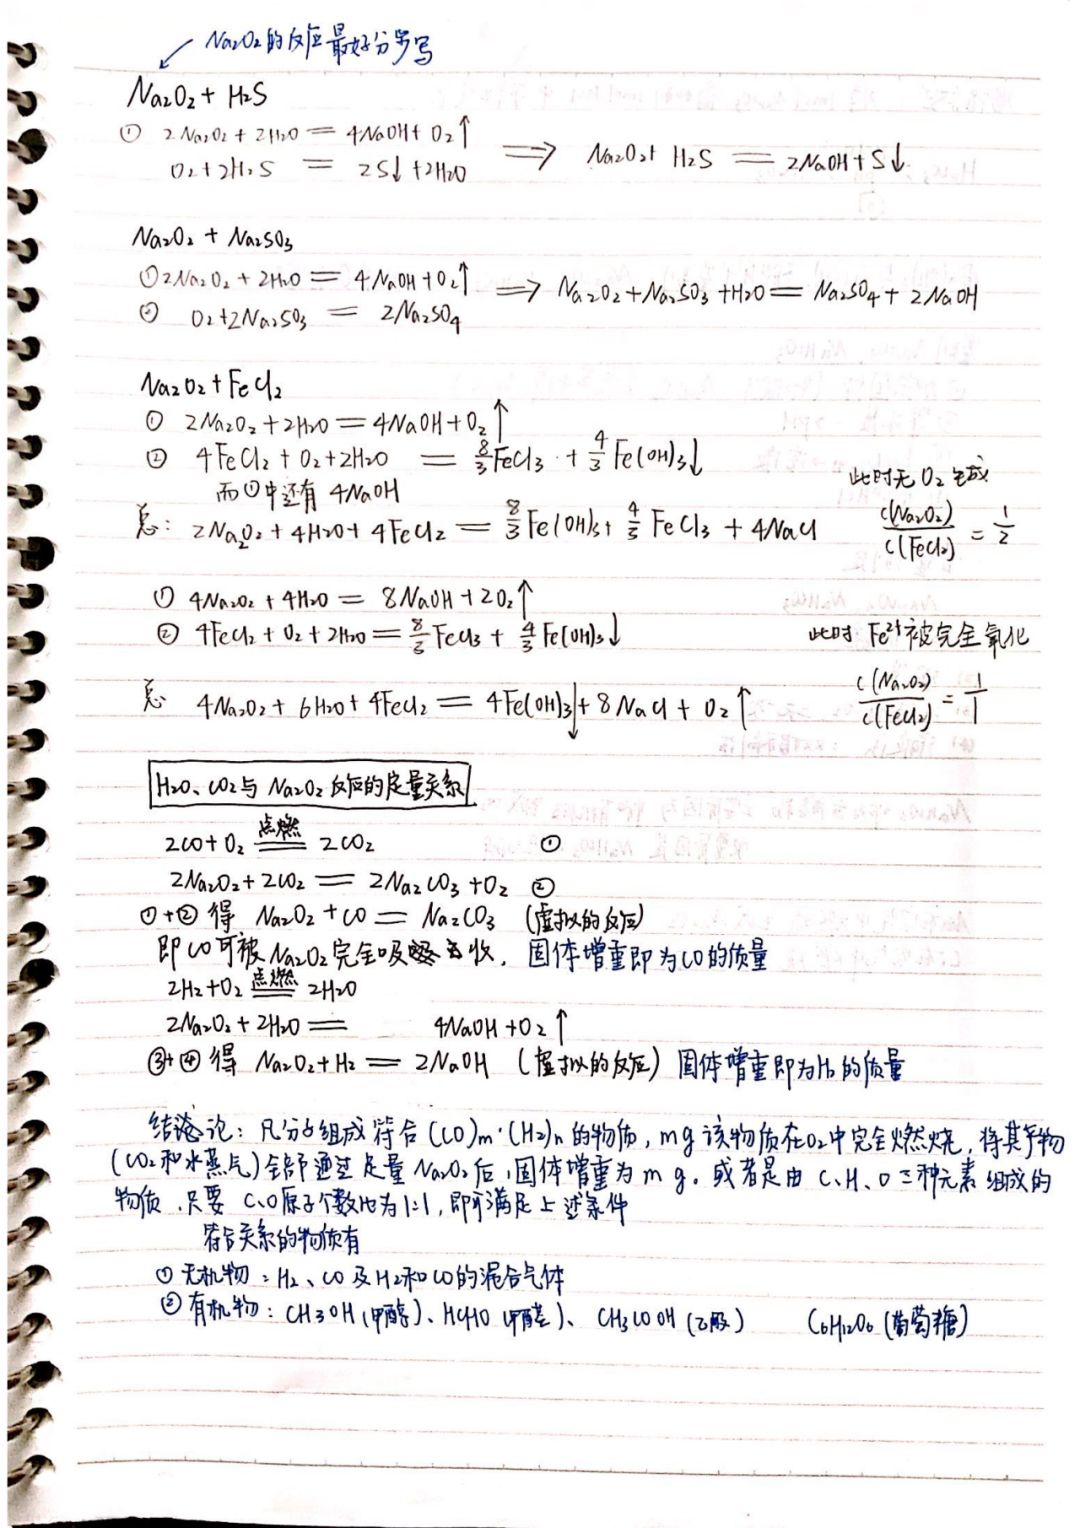 Na₂O₂的反应最好分步写
Na₂O₂ + H₂S
① 2Na₂O₂ + 2H₂O == 4NaOH + O₂↑
O₂ + 2H₂S == 2S↓ + 2H₂O ⟹ Na₂O₂ + H₂S == 2NaOH + S↓
Na₂O₂ + Na₂SO₃
① 2Na₂O₂ + 2H₂O == 4NaOH + O₂↑ ⟹ Na₂O₂ + Na₂SO₃ + H₂O == Na₂SO₄ + 2NaOH
② O₂ + 2Na₂SO₃ == 2Na₂SO₄
Na₂O₂ + FeCl₂
① 2Na₂O₂ + 2H₂O == 4NaOH + O₂↑
② 4FeCl₂ + O₂ + 2H₂O == 8/3 FeCl₃ + 4/3 Fe(OH)₃↓
而①中还有 4NaOH
此时无O₂生成
总: 2Na₂O₂ + 4H₂O + 4FeCl₂ == 8/3 Fe(OH)₃ + 4/3 FeCl₃ + 4NaCl c(Na₂O₂)/c(FeCl₂) = 1/2
① 4Na₂O₂ + 4H₂O == 8NaOH + 2O₂↑
② 4FeCl₂ + O₂ + 2H₂O == 8/3 FeCl₃ + 4/3 Fe(OH)₃↓ 此时 Fe²⁺被完全氧化
总 4Na₂O₂ + 6H₂O + 4FeCl₂ == 4Fe(OH)₃↓ + 8NaCl + O₂↑ c(Na₂O₂)/c(FeCl₂) = 1/1
H₂O、CO₂与Na₂O₂反应的定量关系
2CO + O₂ =点燃= 2CO₂ ①
2Na₂O₂ + 2CO₂ == 2Na₂CO₃ + O₂ ②
①+②得 Na₂O₂ + CO == Na₂CO₃ (虚拟的反应)
即CO可被Na₂O₂完全吸收, 固体增重即为CO的质量
2H₂ + O₂ =点燃= 2H₂O
2Na₂O₂ + 2H₂O == 4NaOH + O₂↑
③+④得 Na₂O₂ + H₂ == 2NaOH (虚拟的反应) 固体增重即为H₂的质量
结论: 凡分子组成符合(CO)m·(H₂)n的物质, mg该物质在O₂中完全燃烧, 将其产物
(CO₂和水蒸气)全部通过足量Na₂O₂后, 固体增重为m g。或者是由C、H、O三种元素组成的
物质, 只要C、O原子个数比为1:1, 即可满足上述条件
符合关系的物质有
① 无机物: H₂、CO及H₂和CO的混合气体
② 有机物: CH₃OH(甲醇)、HCHO(甲醛)、CH₃COOH(乙酸) C₆H₁₂O₆(葡萄糖)